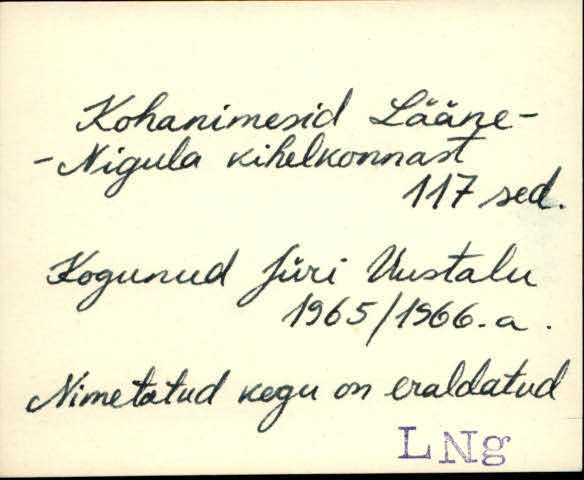 Kohanimesid Lääne-
-Nigula kihelkonnast
117 sed.
Kogunud Jüri Uustalu
1965/1966.a.
Nimetatud kogu on eraldatud
LNg